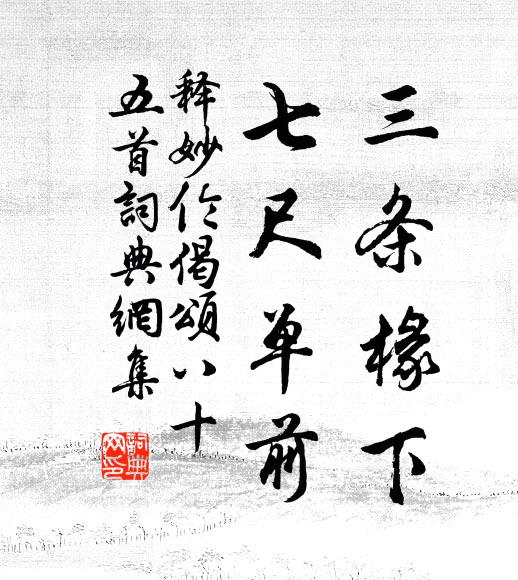 三条椽下
七尺单前
释妙伦偈颂八十
五首詞典網集
詞典
网印